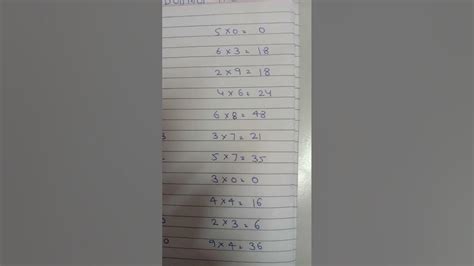 5 × 0 = 0
6 × 3 = 18
2 × 9 = 18
4 × 6 = 24
6 × 8 = 48
3 × 7 = 21
5 × 7 = 35
3 × 0 = 0
4 × 4 = 16
2 × 3 = 6
9 × 4 = 36